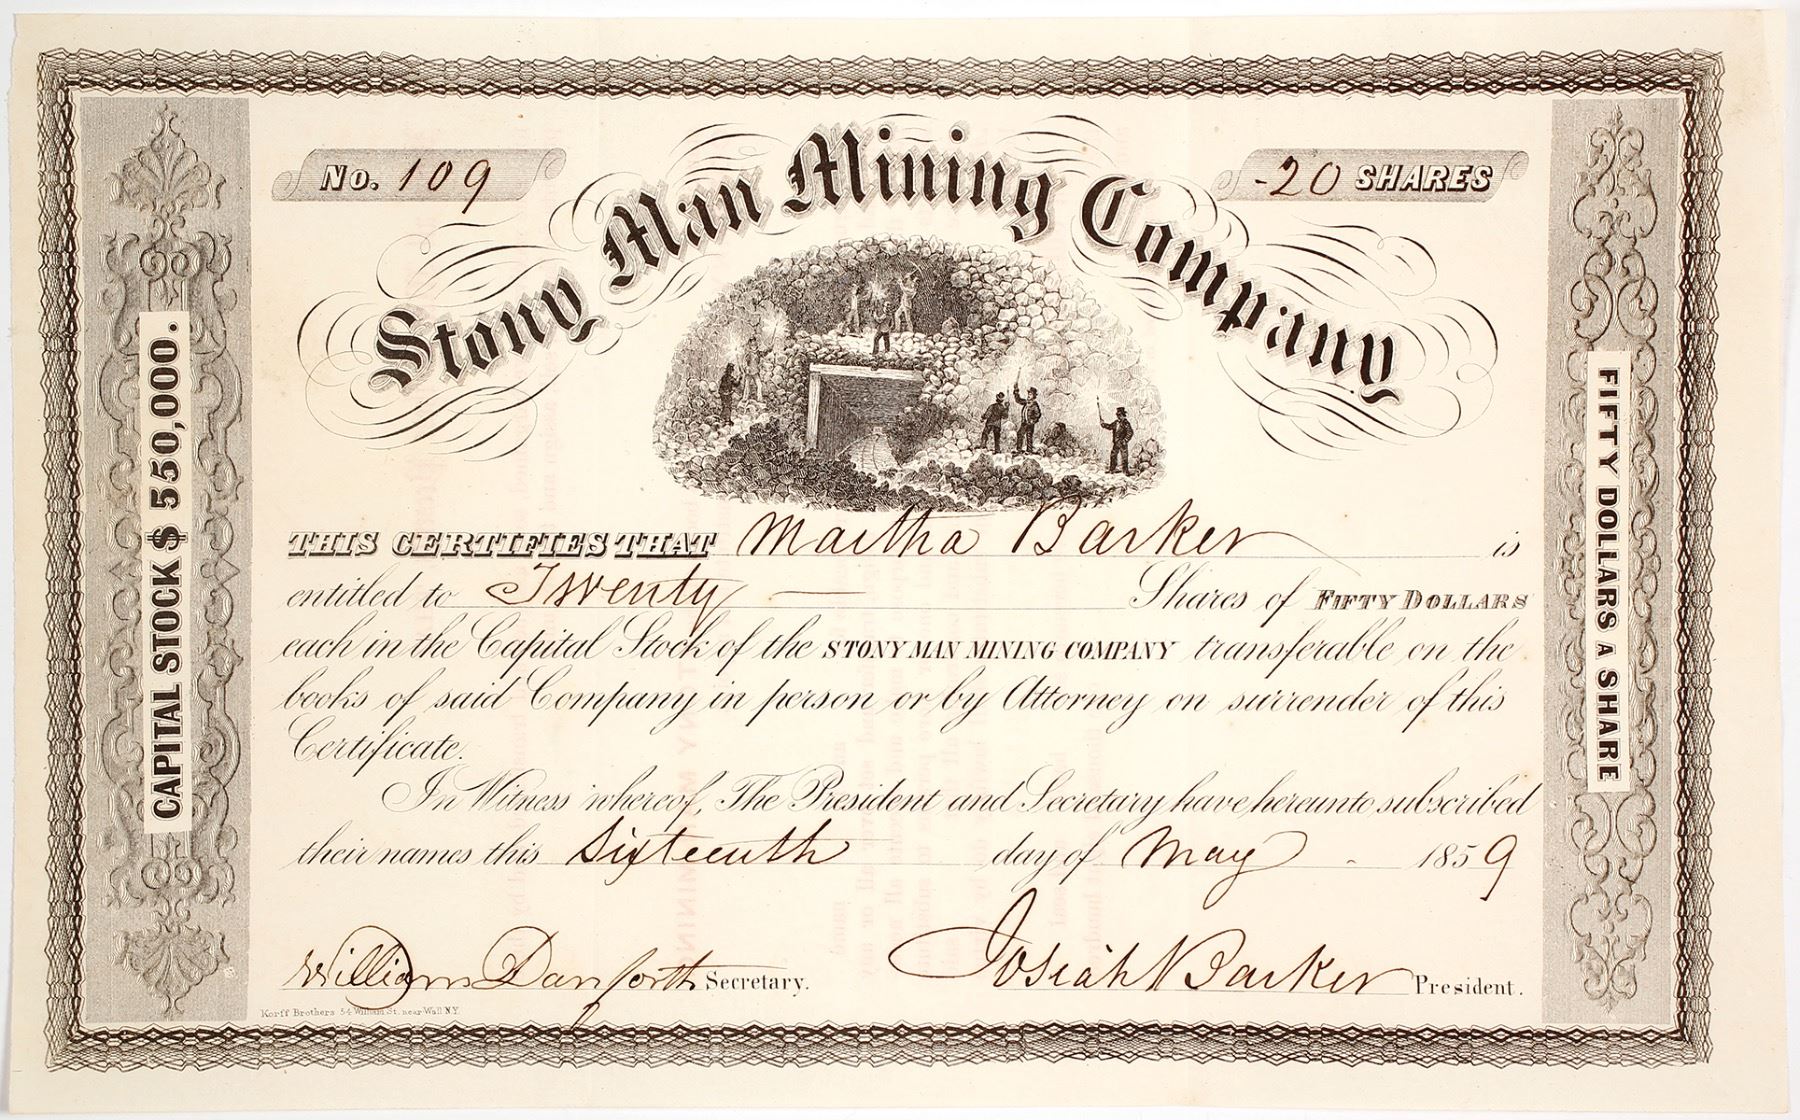 No. 109
-20 SHARES
Stony Man Mining Company
CAPITAL STOCK $ 550,000.
FIFTY DOLLARS A SHARE
THIS CERTIFIES THAT Martha Barker is
entitled to Twenty — Shares of FIFTY DOLLARS
each in the Capital Stock of the STONY MAN MINING COMPANY transferable on the
books of said Company in person or by Attorney on surrender of this
Certificate.
In Witness whereof, The President and Secretary have hereunto subscribed
their names this Sixteenth day of May - 1859
William Danforth Secretary.
Josiah Barker President.
Korff Brothers 54 William St. near Wall N.Y.